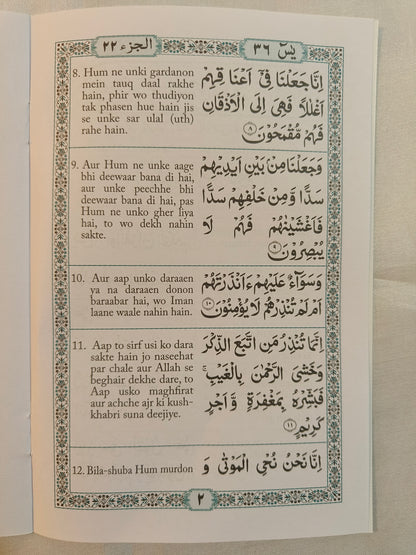 الجزء ٢٢
يٰسٓ ٣٦
8. Hum ne unki gardanon
mein tauq daal rakhe
hain, phir wo thudiyon
tak phasen hue hain jis
se unke sar ulal (uth)
rahe hain.
اِنَّا جَعَلْنَا فِىْٓ اَعْنَاقِهِمْ
اَغْلٰلًا فَهِىَ اِلَى الْاَذْقَانِ
فَهُمْ مُّقْمَحُوْنَ ۸
9. Aur Hum ne unke aage
bhi deewaar bana di hai,
aur unke peechhe bhi
deewaar bana di hai, pas
Hum ne unko gher liya
hai, to wo dekh nahin
sakte.
وَجَعَلْنَا مِنْۢ بَيْنِ اَيْدِيْهِمْ
سَدًّا وَّمِنْ خَلْفِهِمْ سَدًّا
فَاَغْشَيْنٰهُمْ فَهُمْ لَا
يُبْصِرُوْنَ ۹
10. Aur aap unko daraaen
ya na daraaen donon
baraabar hai, wo Iman
laane waale nahin hain.
وَسَوَآءٌ عَلَيْهِمْ ءَاَنْذَرْتَهُمْ
اَمْ لَمْ تُنْذِرْهُمْ لَا يُؤْمِنُوْنَ ۱۰
11. Aap to sirf usi ko dara
sakte hain jo naseehat
par chale aur Allah se
beghair dekhe dare, to
Aap usko maghfirat
aur achche ajr ki kush-
khabri suna deejiye.
اِنَّمَا تُنْذِرُ مَنِ اتَّبَعَ الذِّكْرَ
وَخَشِىَ الرَّحْمٰنَ بِالْغَيْبِ ۚ
فَبَشِّرْهُ بِمَغْفِرَةٍ وَّاَجْرٍ
كَرِيْمٍ ۱۱
12. Bila-shuba Hum murdon
اِنَّا نَحْنُ نُحْىِ الْمَوْتٰى وَ
٢